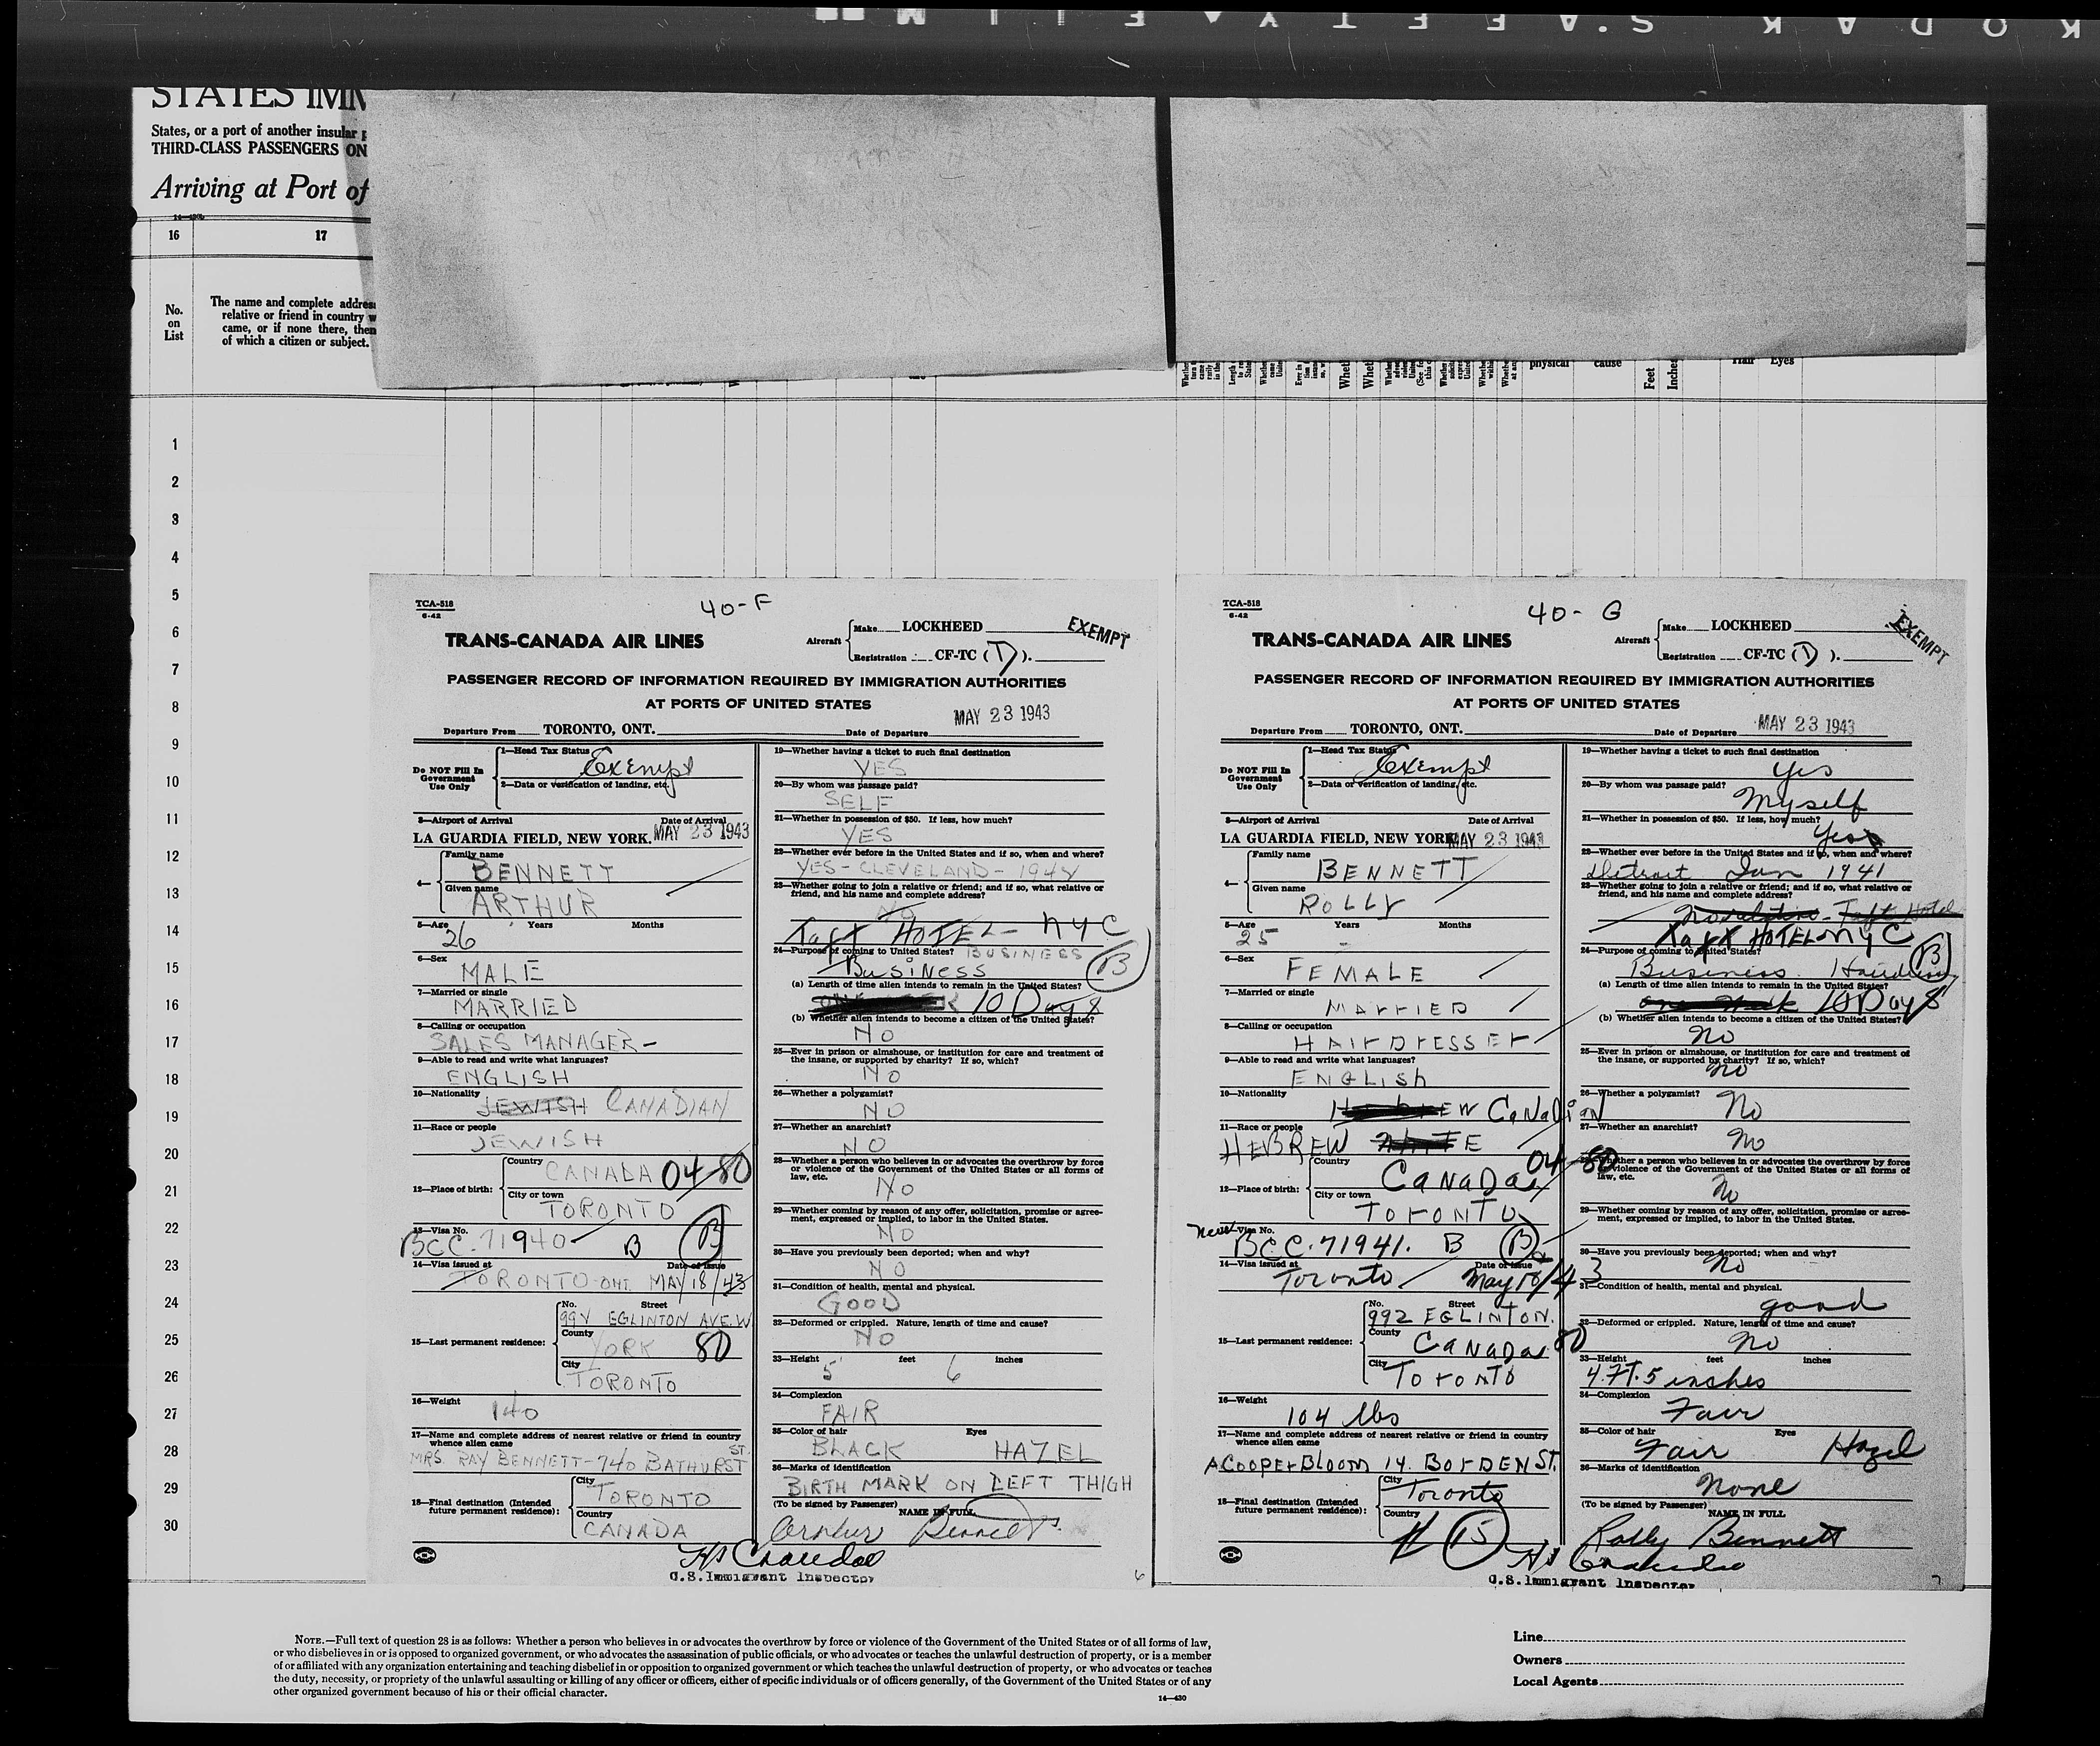 KODAK SAFETY FILM
STATES IMM
States, or a port of another insular p
THIRD-CLASS PASSENGERS ON
Arriving at Port of
16 17
No. on List
The name and complete address
relative or friend in country w
came, or if none there, then
of which a citizen or subject.
physical cause Feet Inches Hair Eyes
1
2
3
4
5
6
7
8
9
10
11
12
13
14
15
16
17
18
19
20
21
22
23
24
25
26
27
28
29
30
TCA-518
6-42
40-F
TRANS-CANADA AIR LINES
Aircraft
Make LOCKHEED
Registration CF-TC (D).
EXEMPT
PASSENGER RECORD OF INFORMATION REQUIRED BY IMMIGRATION AUTHORITIES
AT PORTS OF UNITED STATES
MAY 23 1943
Departure From TORONTO, ONT. Date of Departure
Do NOT Fill In Government Use Only
1—Head Tax Status
Exempt
2—Data or verification of landing, etc.
3—Airport of Arrival Date of Arrival
LA GUARDIA FIELD, NEW YORK. MAY 23 1943
4—
Family name
BENNETT
Given name
ARTHUR
5—Age Years Months
26
6—Sex
MALE
7—Married or single
MARRIED
8—Calling or occupation
SALES MANAGER-
9—Able to read and write what languages?
ENGLISH
10—Nationality
JEWISH CANADIAN
11—Race or people
JEWISH
12—Place of birth:
Country
CANADA 04-80
City or town
TORONTO
13—Visa No.
BCC. 71940 B B
14—Visa issued at Date of Issue
TORONTO-ONT. MAY 18/43
15—Last permanent residence:
No. Street
992 EGLINTON AVE. W
County
YORK 80
City
TORONTO
16—Weight
140
17—Name and complete address of nearest relative or friend in country whence alien came
MRS. RAY BENNETT-740 BATHURST ST.
18—Final destination (Intended future permanent residence):
City
TORONTO
Country
CANADA
19—Whether having a ticket to such final destination
YES
20—By whom was passage paid?
SELF
21—Whether in possession of $50. If less, how much?
YES
22—Whether ever before in the United States and if so, when and where?
YES-CLEVELAND-1942
23—Whether going to join a relative or friend; and if so, what relative or
friend, and his name and complete address?
NO
Taft HOTEL- NYC
24—Purpose of coming to United States? BUSINESS
Business B
(a) Length of time alien intends to remain in the United States?
10 Days
(b) Whether alien intends to become a citizen of the United States?
NO
25—Ever in prison or almshouse, or institution for care and treatment of
the insane, or supported by charity? If so, which?
NO
26—Whether a polygamist?
NO
27—Whether an anarchist?
NO
28—Whether a person who believes in or advocates the overthrow by force
or violence of the Government of the United States or all forms of
law, etc.
NO
29—Whether coming by reason of any offer, solicitation, promise or agree-
ment, expressed or implied, to labor in the United States.
NO
30—Have you previously been deported; when and why?
NO
31—Condition of health, mental and physical.
GOOD
32—Deformed or crippled. Nature, length of time and cause?
NO
33—Height feet inches
5' 6
34—Complexion
FAIR
35—Color of hair Eyes
BLACK HAZEL
36—Marks of identification
BIRTH MARK ON LEFT THIGH
(To be signed by Passenger) NAME IN FULL
Arthur Bennett
U.S. Immigrant Inspector
6
TCA-518
6-42
40-G
TRANS-CANADA AIR LINES
Aircraft
Make LOCKHEED
Registration CF-TC (D).
EXEMPT
PASSENGER RECORD OF INFORMATION REQUIRED BY IMMIGRATION AUTHORITIES
AT PORTS OF UNITED STATES
MAY 23 1943
Departure From TORONTO, ONT. Date of Departure
Do NOT Fill In Government Use Only
1—Head Tax Status
Exempt
2—Data or verification of landing, etc.
3—Airport of Arrival Date of Arrival
LA GUARDIA FIELD, NEW YORK MAY 23 1943
4—
Family name
BENNETT
Given name
ROLLY
5—Age Years Months
25 -
6—Sex
FEMALE
7—Married or single
MArrIED
8—Calling or occupation
HAIrDrESSEr
9—Able to read and write what languages?
ENGLISh
10—Nationality
CaNadian
11—Race or people
HEBREW
12—Place of birth:
Country
CaNaDa 04-80
City or town
TOrONTO
13—Visa No.
BCC. 71941. B B
14—Visa issued at Date of Issue
Toronto May 18/43
15—Last permanent residence:
No. Street
992 EGLINTON.
County
CaNaDa 80
City
TOrONTO
16—Weight
104 lbs
17—Name and complete address of nearest relative or friend in country whence alien came
A COOPErBLOOM 14. BOrDEN ST.
18—Final destination (Intended future permanent residence):
City
Toronto
Country
15
19—Whether having a ticket to such final destination
Yes
20—By whom was passage paid?
Myself
21—Whether in possession of $50. If less, how much?
Yes
22—Whether ever before in the United States and if so, when and where?
Detroit Jan 1941
23—Whether going to join a relative or friend; and if so, what relative or
friend, and his name and complete address?
No relative - Taft Hotel
Taft HOTEL NYC
24—Purpose of coming to United States?
Business B
(a) Length of time alien intends to remain in the United States?
one week 10 Days
(b) Whether alien intends to become a citizen of the United States?
No
25—Ever in prison or almshouse, or institution for care and treatment of
the insane, or supported by charity? If so, which?
no
26—Whether a polygamist?
No
27—Whether an anarchist?
No
28—Whether a person who believes in or advocates the overthrow by force
or violence of the Government of the United States or all forms of
law, etc.
No
29—Whether coming by reason of any offer, solicitation, promise or agree-
ment, expressed or implied, to labor in the United States.
30—Have you previously been deported; when and why?
No
31—Condition of health, mental and physical.
good
32—Deformed or crippled. Nature, length of time and cause?
No
33—Height feet inches
4.FT.5 inches
34—Complexion
Fair
35—Color of hair Eyes
Fair Hazel
36—Marks of identification
None
(To be signed by Passenger) NAME IN FULL
Rolly Bennett
U.S. Immigrant Inspector
7
NOTE.—Full text of question 28 is as follows: Whether a person who believes in or advocates the overthrow by force or violence of the Government of the United States or of all forms of law,
or who disbelieves in or is opposed to organized government, or who advocates the assassination of public officials, or who advocates or teaches the unlawful destruction of property, or is a member
of or affiliated with any organization entertaining and teaching disbelief in or opposition to organized government or which teaches the unlawful destruction of property, or who advocates or teaches
the duty, necessity, or propriety of the unlawful assaulting or killing of any officer or officers, either of specific individuals or of officers generally, of the Government of the United States or of any
other organized government because of his or their official character.
14—430
Line
Owners
Local Agents